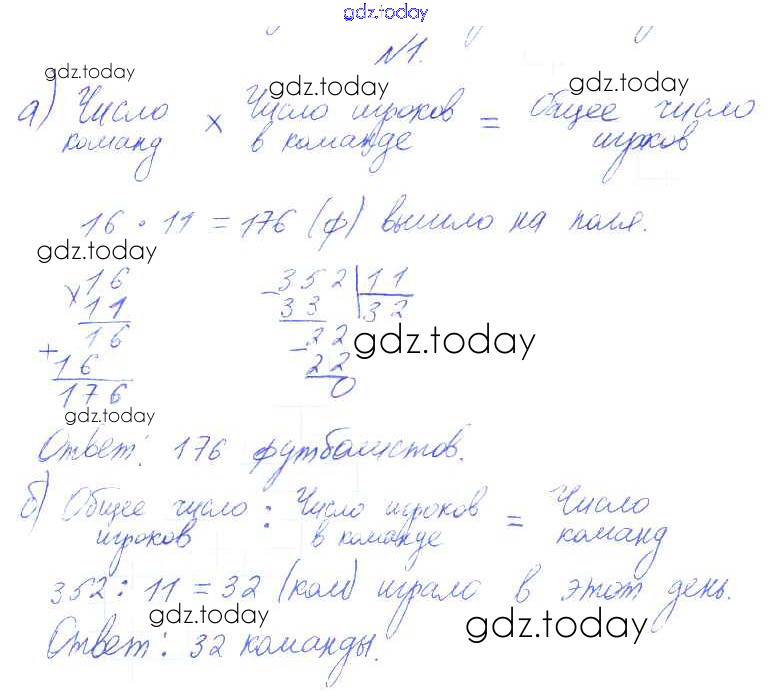 gdz.today
№1.
gdz.today gdz.today gdz.today
а) Число × Число игроков = Общее число
команд в команде игроков
16 · 11 = 176 (ф) вышло на поля.
gdz.today
× 16 - 352 | 11
11 33 32
16 - 22 gdz.today
+ 16 22
176 0
gdz.today
Ответ: 176 футболистов.
б) Общее число : Число игроков = Число
игроков в команде команд
352 : 11 = 32 (ком) играло в этот день.
gdz.today gdz.today gdz.today
Ответ: 32 команды.